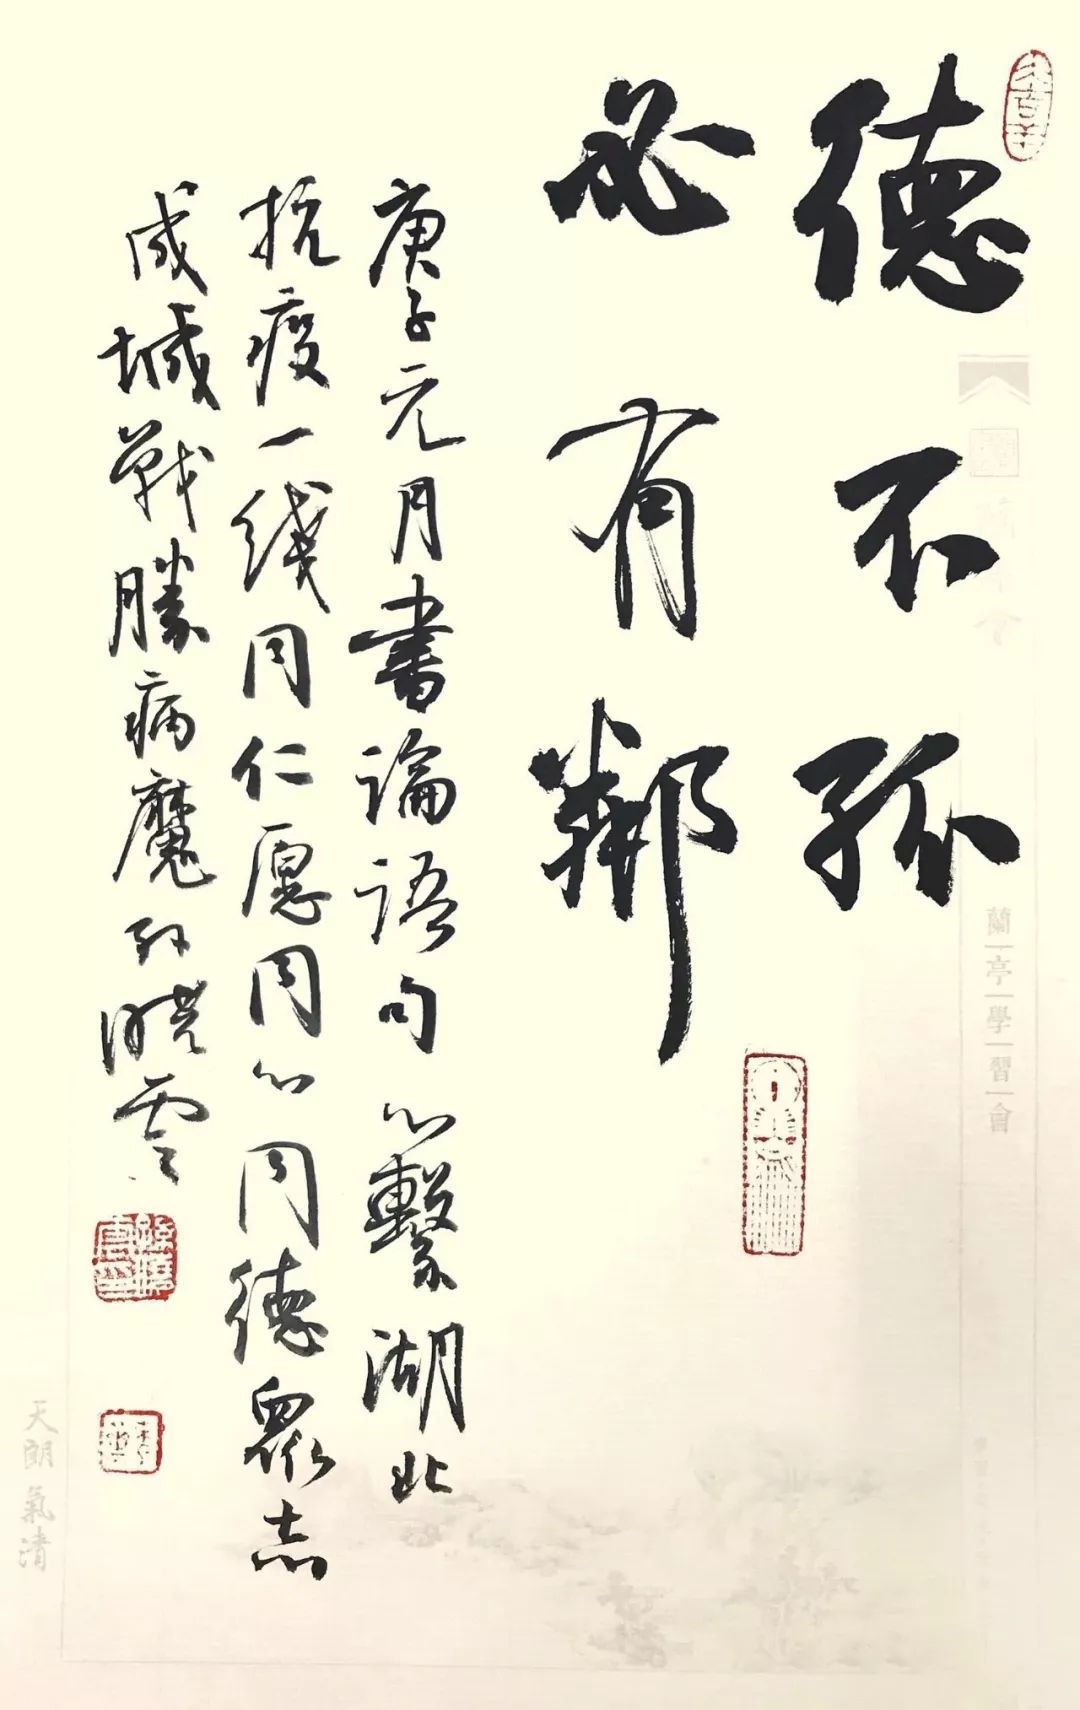 德不孤
必有鄰
庚子元月書論語句心繫湖北
抗疫一线同仁愿同心同德眾志
成城戰勝病魔孙晓雲
蘭亭學習會
天朗氣清